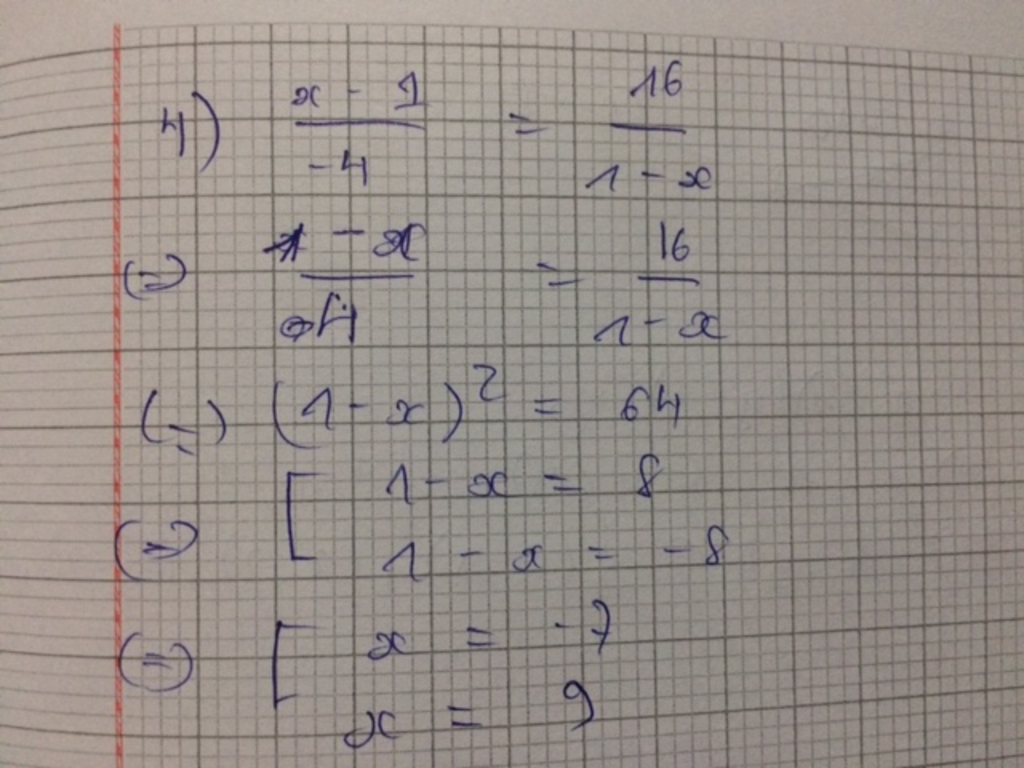 4) x - 1 / -4 = 16 / 1 - x
(=) 1 - x / 4 = 16 / 1 - x
(=) (1 - x)² = 64
(=) [ 1 - x = 8
1 - x = -8
(=) [ x = -7
x = 9